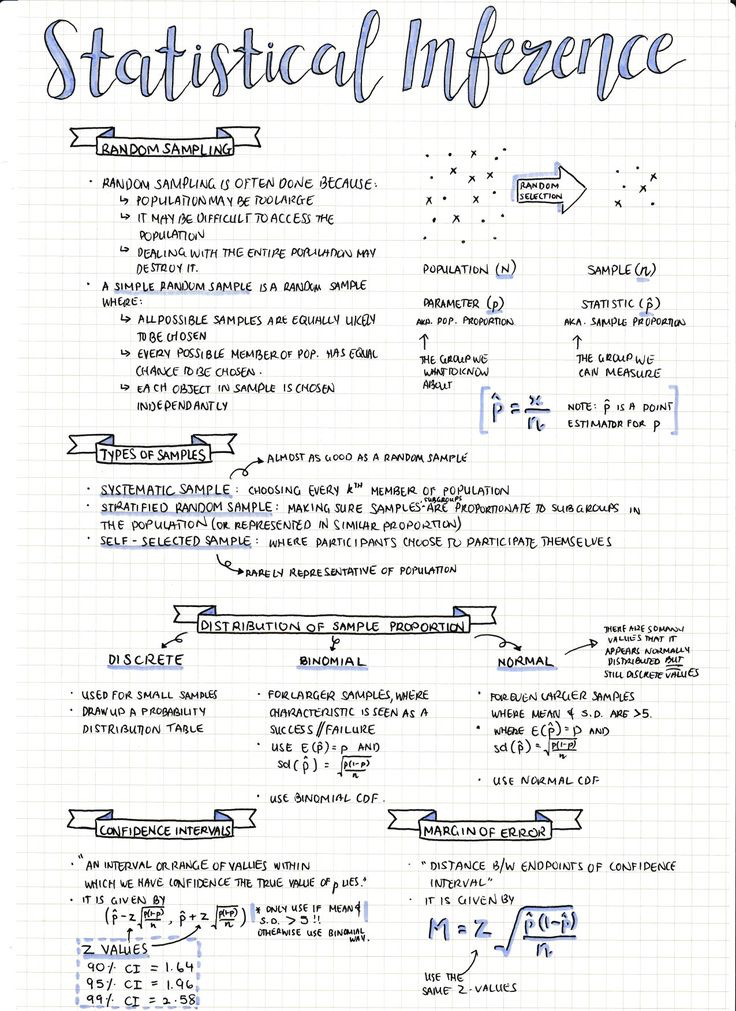 Statistical Inference
RANDOM SAMPLING
· RANDOM SAMPLING IS OFTEN DONE BECAUSE:
↳ POPULATION MAY BE TOO LARGE
↳ IT MAY BE DIFFICULT TO ACCESS THE
POPULATION
↳ DEALING WITH THE ENTIRE POPULATION MAY
DESTROY IT.
· A SIMPLE RANDOM SAMPLE IS A RANDOM SAMPLE
WHERE:
↳ ALL POSSIBLE SAMPLES ARE EQUALLY LIKELY
TO BE CHOSEN
↳ EVERY POSSIBLE MEMBER OF POP. HAS EQUAL
CHANCE TO BE CHOSEN.
↳ EACH OBJECT IN SAMPLE IS CHOSEN
INDEPENDANTLY
RANDOM
SELECTION
POPULATION (N)
SAMPLE (n)
PARAMETER (p)
AKA. POP. PROPORTION
STATISTIC (p̂)
AKA. SAMPLE PROPORTION
THE GROUP WE
WANT TO KNOW
ABOUT
THE GROUP WE
CAN MEASURE
p̂ = x/n
NOTE: p̂ IS A POINT
ESTIMATOR FOR p
TYPES OF SAMPLES
ALMOST AS GOOD AS A RANDOM SAMPLE
· SYSTEMATIC SAMPLE: CHOOSING EVERY kTH MEMBER OF POPULATION
· STRATIFIED RANDOM SAMPLE: MAKING SURE SAMPLES SUBGROUPS ARE PROPORTIONATE TO SUBGROUPS IN
THE POPULATION (OR REPRESENTED IN SIMILAR PROPORTION)
· SELF-SELECTED SAMPLE: WHERE PARTICIPANTS CHOOSE TO PARTICIPATE THEMSELVES
RARELY REPRESENTATIVE OF POPULATION
DISTRIBUTION OF SAMPLE PROPORTION
DISCRETE
· USED FOR SMALL SAMPLES
· DRAW UP A PROBABILITY
DISTRIBUTION TABLE
BINOMIAL
· FOR LARGER SAMPLES, WHERE
CHARACTERISTIC IS SEEN AS A
SUCCESS//FAILURE
· USE E(p̂)=p AND
sd(p̂) = √(p(1-p)/n)
· USE BINOMIAL CDF.
NORMAL
THERE ARE SO MANY
VALUES THAT IT
APPEARS NORMALLY
DISTRIBUTED BUT
STILL DISCRETE VALUES
· FOR EVEN LARGER SAMPLES
WHERE MEAN & S.D. ARE >5.
· WHERE E(p̂)=p AND
sd(p̂)=√(p(1-p)/n)
· USE NORMAL CDF
CONFIDENCE INTERVALS
· "AN INTERVAL OR RANGE OF VALUES WITHIN
WHICH WE HAVE CONFIDENCE THE TRUE VALUE OF p LIES."
· IT IS GIVEN BY
(p̂-z√(p(1-p)/n), p̂+z√(p(1-p)/n))
* ONLY USE IF MEAN &
S.D. > 5!!
OTHERWISE USE BINOMIAL
WAY.
Z VALUES
90% CI = 1.64
95% CI = 1.96
99% CI = 2.58
MARGIN OF ERROR
· "DISTANCE B/W ENDPOINTS OF CONFIDENCE
INTERVAL"
· IT IS GIVEN BY
M = Z√(p̂(1-p̂)/n)
USE THE
SAME Z-VALUES